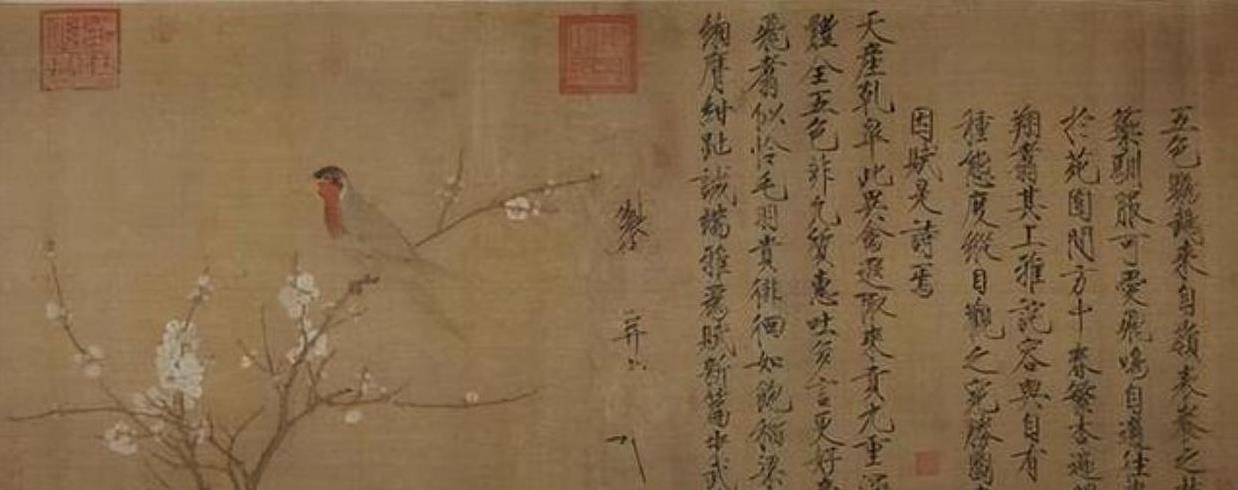 五色鸚鵡來自嶺表養之
籞馴服可愛飛鳴自適往
於苑囿間方中春繁杏遍
翔翥其上雅詫容與自有
種態度縱目觀之宛勝圖
因賦是詩焉
天產乾皋此異禽遐陬來貢九重深
體全五色非凡質惠吐多言更好
飛翥似憐毛羽貴徘徊如飽稻粱
緗膺紺趾誠端雅為賦新篇步武
製